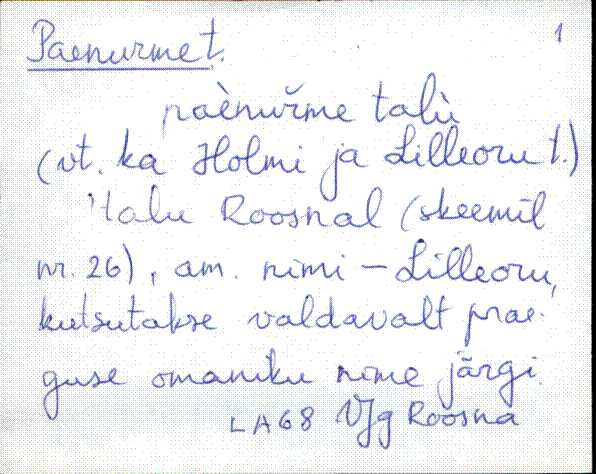 Paenurme t. 1
paènuřme talù
(vt. ka Holmi ja Lilleoru t.)
Talu Roosnal (skeemil
nr. 26), am. nimi – Lilleoru,
kutsutakse valdavalt prae-
guse omaniku nime järgi.
LA68 VJg Roosna